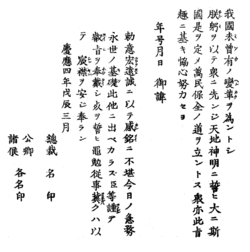 我國未曾有ノ變革ヲ為ントシ
朕躬ヲ以テ衆ニ先ンシ天地神明ニ誓ヒ大ニ斯
國是ヲ定メ萬民保全ノ道ヲ立ントス衆亦此旨
趣ニ基キ協心努力セヨ
年号月日 御諱
勅意宏遠誠ニ以テ感銘ニ不堪今日ノ急務
永世ノ基礎此他ニ出ヘカラス臣等謹テ
叡旨ヲ奉戴シ死ヲ誓ヒ黽勉從事冀クハ以
テ宸襟ヲ安シ奉ラン
慶應四年戊辰三月
總裁 名 印
公卿 各名 印
諸侯